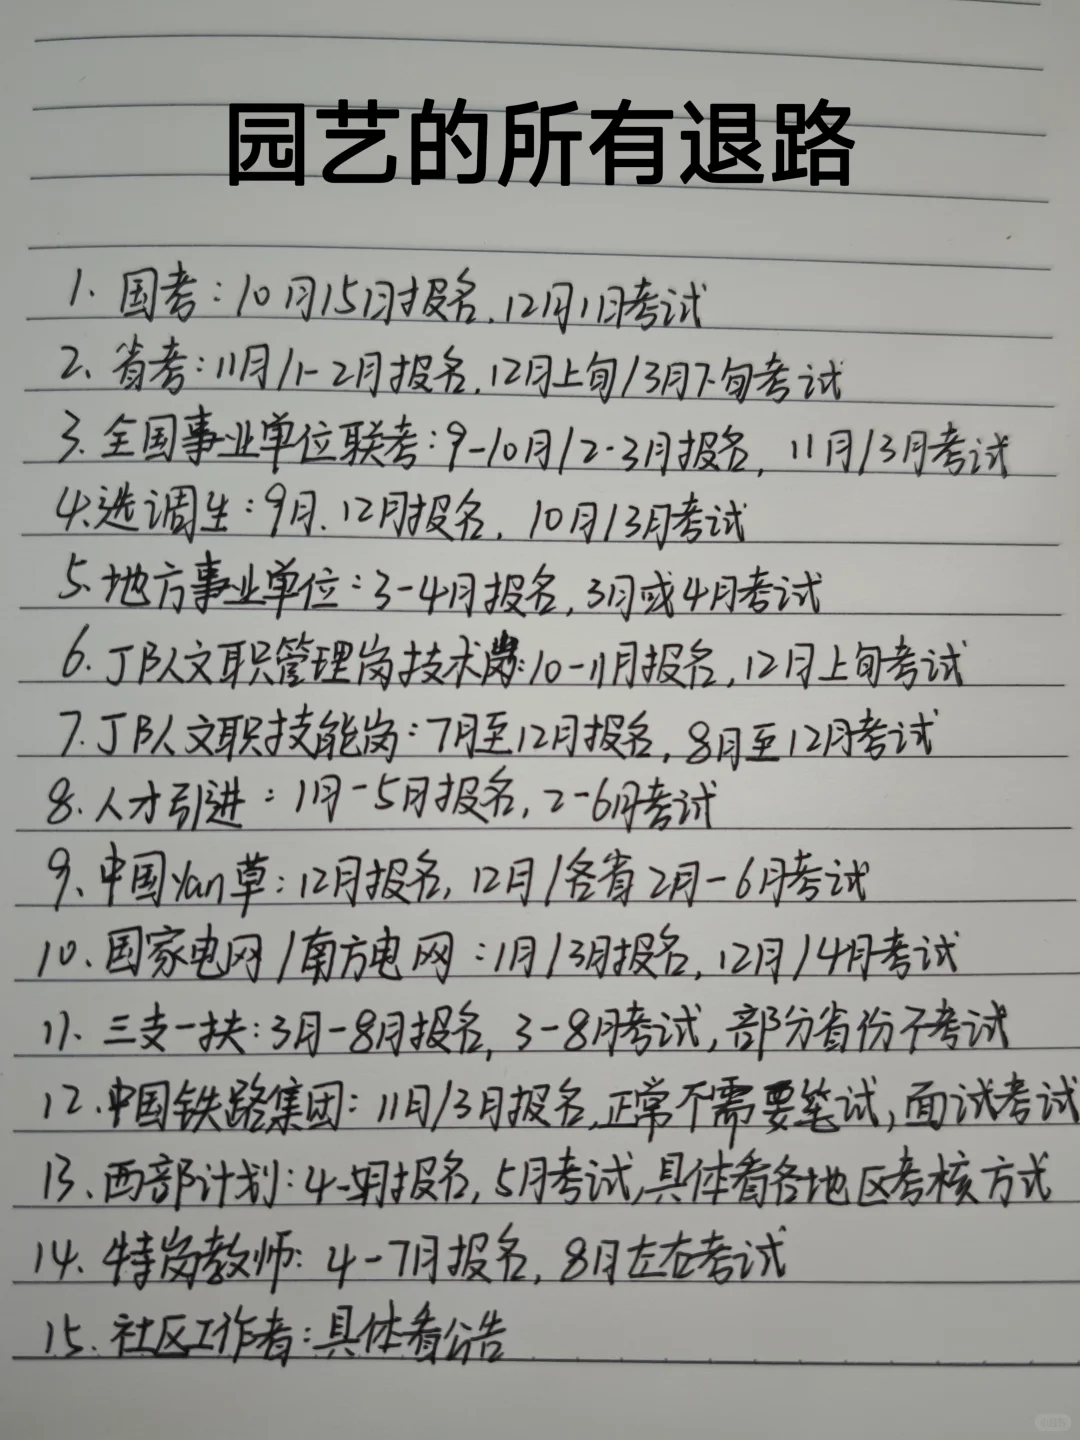 园艺的所有退路
1. 国考：10月15日报名，12月1日考试
2、省考：11月/1-2月报名，12月上旬/3月下旬考试
3. 全国事业单位联考：9-10月/2-3月报名，11月/3月考试
4.选调生：9月、12月报名，10月/3月考试
5. 地方事业单位：3-4月报名，3月或4月考试
6. JB人文职管理岗技术岗：10-11月报名，12月上旬考试
7. JB人文职技能岗：7月至12月报名，8月至12月考试
8. 人才引进：1月-5月报名，2-6月考试
9、中国yan草：12月报名，12月/各省2月-6月考试
10、国家电网/南方电网：1月/3月报名，12月/4月考试
11. 三支一扶：3月-8月报名，3-8月考试，部分省份不考试
12.中国铁路集团：11月/3月报名，正常不需要笔试，面试考试
13、西部计划：4-5月报名，5月考试，具体看各地区考核方式
14. 特岗教师：4-7月报名，8月左右考试
15. 社区工作者：具体看公告
小红书